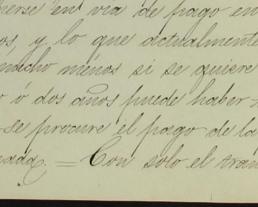 nerse en via de pago en
os, y lo que actualmente
mucho menos si se quiere
o ó dos años puede haber
se procure el pago de la
= Con solo el tran